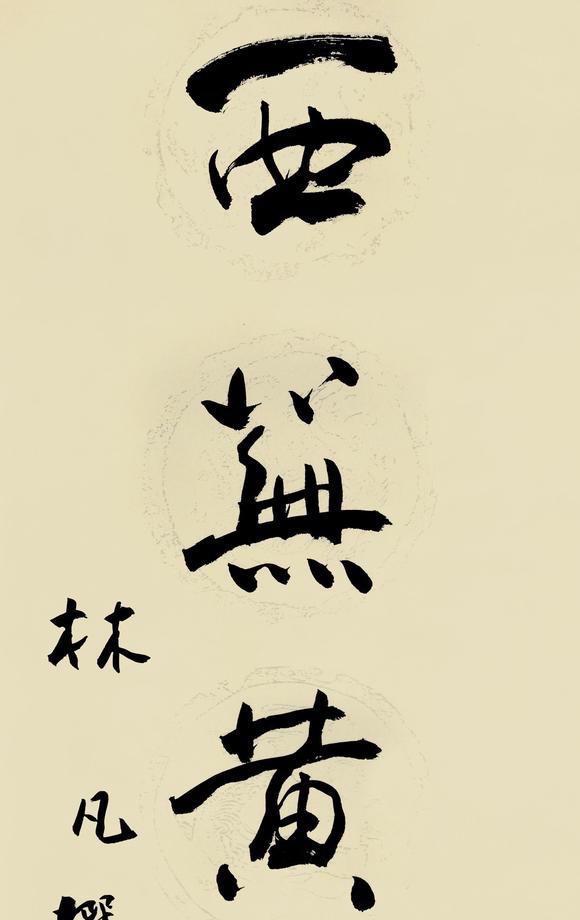 西蕪黄
林凡